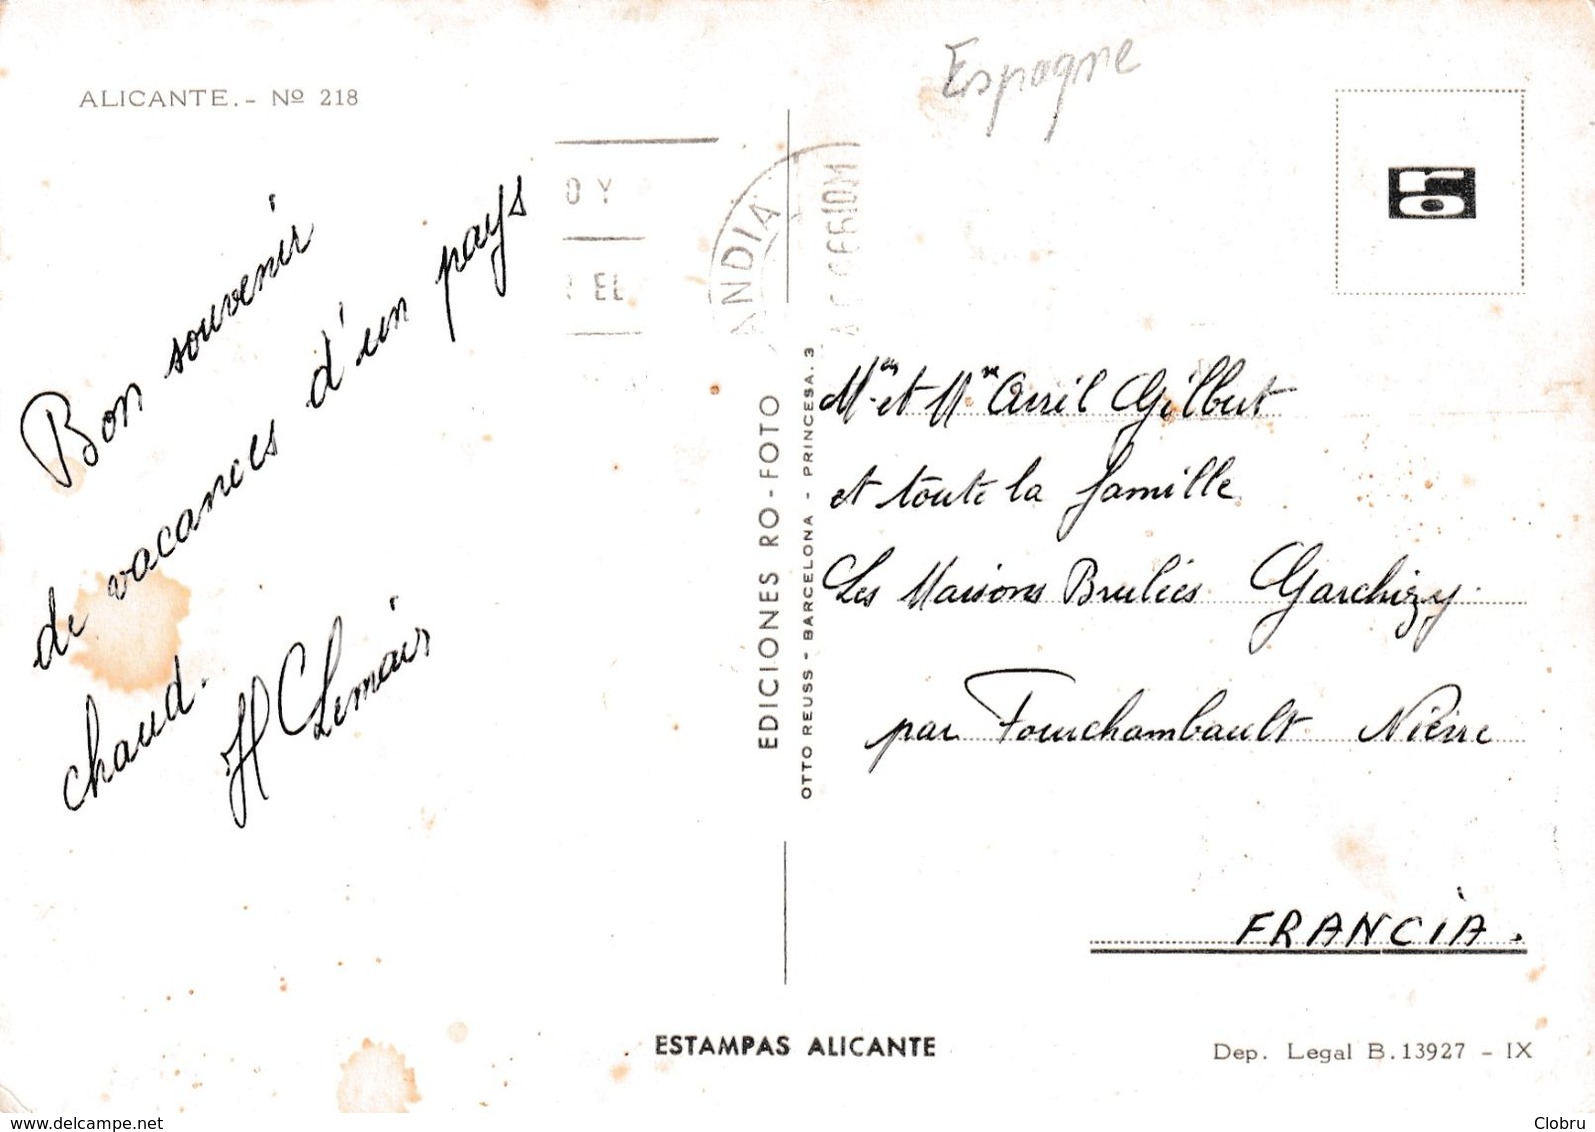 ALICANTE.- Nº 218
Espagne
O Y
EL
ANDIA
ro
Bon souvenir
de vacances d'un pays
chaud.
H Lemair
EDICIONES RO-FOTO
OTTO REUSS - BARCELONA - PRINCESA. 3
Mr et Mme Avril Gilbert
et toute la famille
Les Maisons Brulées Garchizy
par Fourchambault Nièvre
FRANCIA.
ESTAMPAS ALICANTE
Dep. Legal B.13927 - IX
www.delcampe.net
Clobru